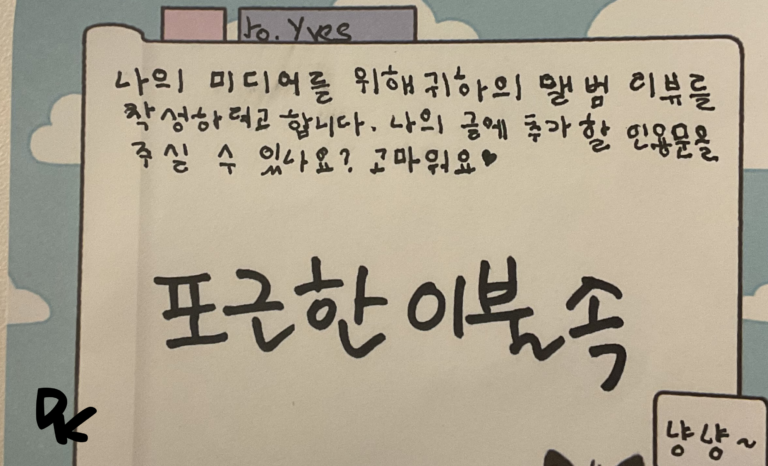 to. Yves
나의 미디어를 위해 귀하의 앨범 리뷰를
작성하려고 합니다. 나의 글에 추가할 인용문을
주실 수 있나요? 고마워요♥
포근한 이불 속
DK
냥냥~